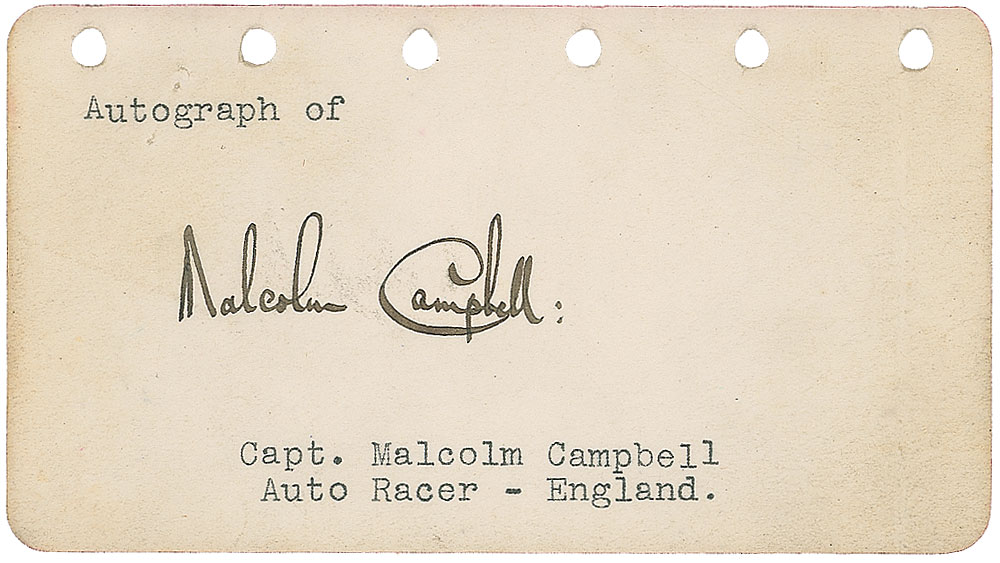 Autograph of
Malcolm Campbell:
Capt. Malcolm Campbell
Auto Racer - England.